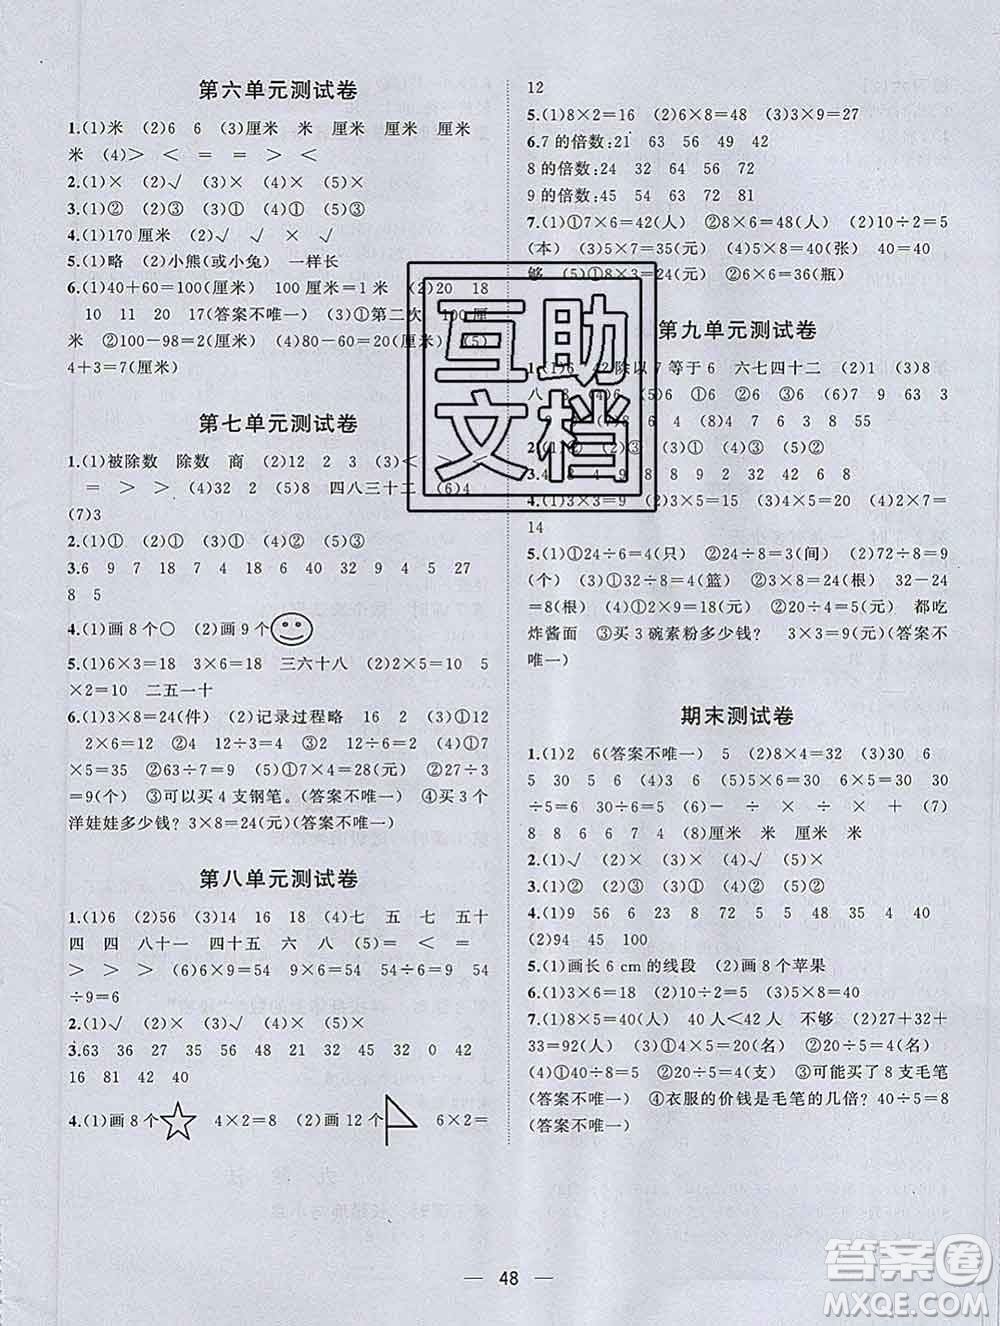 第六单元测试卷
1.(1)米 (2)6 6 (3)厘米 米 厘米 厘米 厘米
米 (4)> < = = > <
2.(1)× (2)√ (3)× (4)× (5)×
3.(1)② (2)③ (3)① (4)① (5)③
4.(1)170 厘米 (2)√
5.(1)略 (2)小熊(或小兔) 一样长
6.(1)40+60=100(厘米) 100 厘米=1 米 (2)20 18
10 11 20 17(答案不唯一) (3)①第二次 100 厘
米 ②100-98=2(厘米) (4)80-60=20(厘米) (5)
4+3=7(厘米)
第七单元测试卷
1.(1)被除数 除数 商 (2)12 2 3 (3)<
= > > (4)32 2 (5)8 四八三十二 (6)4
(7)3
2.(1)① (2)① (3)① (4)② (5)①
3.6 9 7 18 4 18 6 40 32 9 4 5 27
8 5
4.(1)画 8 个○ (2)画 9 个
5.(1)6×3=18 3×6=18 三六十八 (2)2×5=10 5
×2=10 二五一十
6.(1)3×8=24(件) (2)记录过程略 16 2 (3)①12
2×6=12 ②4 12÷3=4 (4)①5×7=35 ②5 7
×5=35 ②63÷7=9 (5)①7×4=28(元) ②27÷3
=9(个) ③可以买 4 支钢笔。(答案不唯一) ④买 3 个
洋娃娃多少钱? 3×8=24(元)(答案不唯一)
第八单元测试卷
1.(1)6 (2)56 (3)14 16 18 (4)七 五 七 五十
四 四 八十一 四十五 六 八 (5)= < = >
> > > (6)6×9=54 9×6=54 54÷6=9 54
÷9=6
2.(1)√ (2)× (3)√ (4)× (5)×
3.63 36 27 35 9 48 21 36 45 32 0 42
16 81 42 40
4.(1)画 8 个 4×2=8 (2)画 12 个 6×2=
12
5.(1)8×2=16 (2)6×4=24 (3)3×9=27
6.7 的倍数:21 63 56 49 42
8 的倍数:24 32 64 56 72
9 的倍数:45 54 63 72 81
7.(1)①7×6=42(人) ②8×6=48(人) (2)10÷2=5
(本) (3)5×7=35(元) (4)5×8=40(张) 40=40
够 (5)①8×3=24(元) ②6×6=36(瓶)
第九单元测试卷
1.(1)6 42 除以 7 等于 6 六七四十二 (2)1 (3)8
2.(1)② (2)② (3)① (4)② (5)②
4.(1)3×3=9 (2)4×5=20 (3)4×5=20 (4)2×7=
14
5.(1)①24÷6=4(只) ②24÷8=3(间) (2)72÷8=9
(个) (3)①32÷8=4(篮) ②32÷4=8(根) 32-24
=8(根) (4)①18÷9=2(元) ②20÷4=5 都吃
炸酱面 ③买 3 碗素粉多少钱? 3×3=9(元)(答案不
唯一)
期末测试卷
1.(1)2 6(答案不唯一) 5 (2)8×4=32 (3)30 6
5 30 5 6 (4)3 6 (5)5×6=30 6×5=30 30
÷5=6 30÷6=5 (6)÷ × ÷ × + (7)
8 8 6 6 7 4 (8)厘米 米 厘米 厘米 米
2.(1)√ (2)× (3)× (4)√ (5)√
3.(1)② (2)③ (3)① (4)② (5)②
4.(1)9 56 6 23 8 72 5 35 4 4 40
(2)94 45 100
5.(1)画长 6 cm的线段 (2)画 8 个苹果
6.(1)3×6=18 (2)6÷3=2 (3)8×5=40
7.(1)8×5=40(人) 40 人<42 人 不够 (2)27+32
+33=92(人) (3)①4×5=20(名) ②20÷5=4(名)
(4)①40÷5=8 ②20÷5=4(支) ③可能买了 8 支毛笔
(答案不唯一) ④衣服的价钱是毛笔的几倍? 40÷5=8
(答案不唯一)
48
互助
文档
答案圈
MXQE.COM